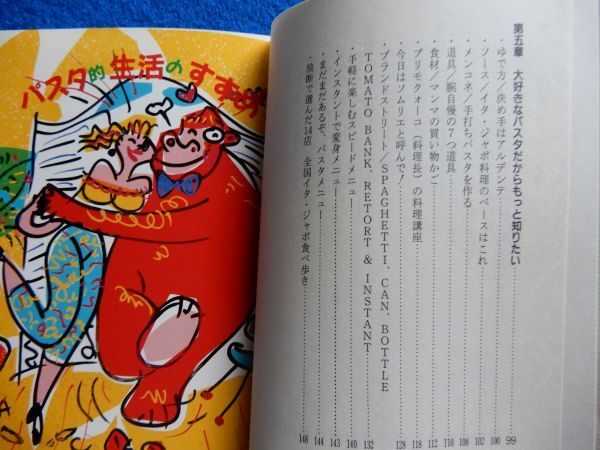 パスタ的生活のすすめ
第五章 大好きなパスタだからもっと知りたい 99
・ゆで方／決め手はアルデンテ 100
・ソース／イタ・ジャポ料理のベースはこれ 102
・メンコネ／手打ちパスタを作る 108
・道具／腕自慢の7つ道具 110
・食材／マンマの買い物かご 112
・プリモクオーコ（料理長）の料理講座 118
・今日はソムリエと呼んで！ 128
・ブランドストリート／SPAGHETTI, CAN, BOTTLE
TOMATO BANK, RETORT & INSTANT 132
・手軽に楽しむスピードメニュー 140
・インスタントで変身メニュー 143
・まだまだあるぞ、パスタメニュー 144
・独断で選んだ14店 全国イタ・ジャポ食べ歩き 148